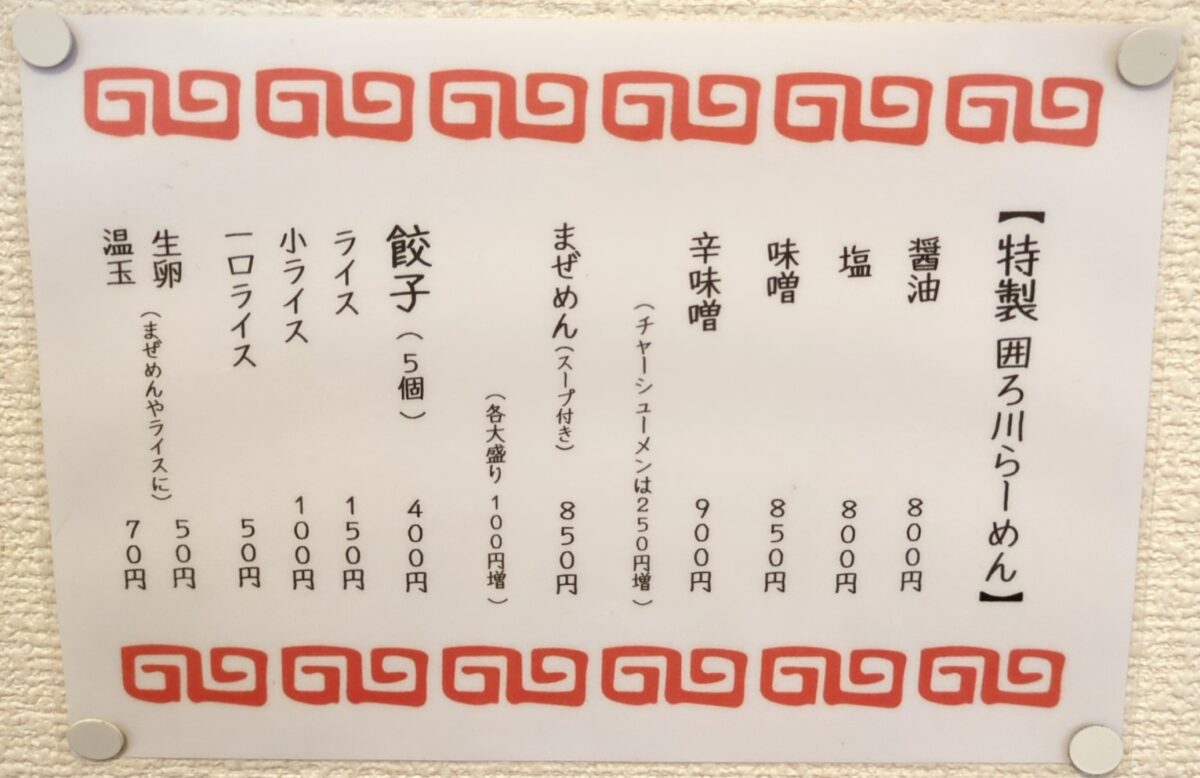 【特製 囲ろ川らーめん】
醤油 800円
塩 800円
味噌 850円
辛味噌 900円
(チャーシューメンは250円増)
まぜめん(スープ付き) 850円
(各大盛り 100円増)
餃子(5個) 400円
ライス 150円
小ライス 100円
一口ライス 50円
生卵 50円
(まぜめんやライスに)
温玉 70円